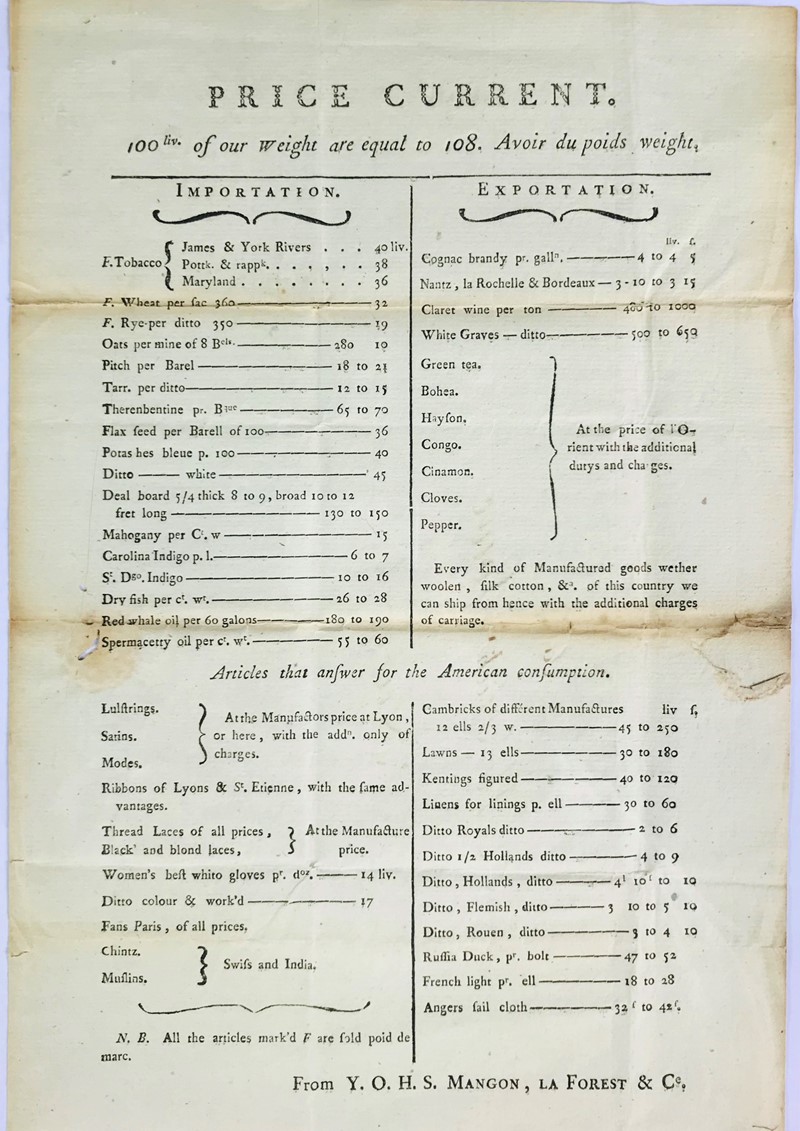 PRICE CURRENT.
100 liv. of our Weight are equal to 108. Avoir du poids weight.
IMPORTATION.
F. Tobacco { James & York Rivers . . . 40 liv.
Pottk. & rappk. . . . , . . 38
Maryland . . . . . . . . 36
F. Wheat per sac 360 — 32
F. Rye per ditto 350 — 19
Oats per mine of 8 Bels. — 280 10
Pitch per Barel — 18 to 21
Tarr. per ditto — 12 to 15
Therenbentine pr. Bque — 65 to 70
Flax seed per Barell of 100 — 36
Potashes bleue p. 100 — 40
Ditto — white — 45
Deal board 5/4 thick 8 to 9, broad 10 to 12
fret long — 130 to 150
Mahogany per Ct. w — 15
Carolina Indigo p. l. — 6 to 7
St. Dgo. Indigo — 10 to 16
Dry fish per ct. wt. — 26 to 28
Red whale oil per 60 galons — 180 to 190
Spermacetty oil per ct. wt. — 55 to 60
EXPORTATION.
liv. ſ.
Cognac brandy pr. galln. — 4 to 4 5
Nantz, la Rochelle & Bordeaux — 3 - 10 to 3 15
Claret wine per ton — 400 to 1000
White Graves — ditto — 500 to 650
Green tea.
Bohea.
Hayſon.
Congo.
Cinamon.
Cloves.
Pepper.
At the price of l'O-
rient with the additional
dutys and charges.
Every kind of Manufactured goods wether
woolen, ſilk cotton, &a. of this country we
can ship from hence with the additional charges
of carriage.
Articles that anſwer for the American conſumption.
Lulſtrings.
Satins.
Modes.
At the Manufactors price at Lyon,
or here, with the addn. only of
charges.
Ribbons of Lyons & St. Etienne, with the ſame ad-
vantages.
Thread Laces of all prices, } At the Manufacture
Black and blond laces, } price.
Women's beſt white gloves pr. doz. — 14 liv.
Ditto colour & work'd — 17
Fans Paris, of all prices.
Chintz.
Muſlins.
Swiſs and India.
N. B. All the articles mark'd F are ſold poid de
marc.
Cambricks of different Manufactures liv ſ.
12 ells 2/3 w. — 45 to 250
Lawns — 13 ells — 30 to 180
Kentings figured — 40 to 120
Linens for linings p. ell — 30 to 60
Ditto Royals ditto — 2 to 6
Ditto 1/2 Hollands ditto — 4 to 9
Ditto, Hollands, ditto — 4l 10ſ to 10
Ditto, Flemish, ditto — 3 10 to 5 10
Ditto, Rouen, ditto — 3 to 4 10
Ruſſia Duck, pr. bolt — 47 to 52
French light pr. ell — 18 to 28
Angers ſail cloth — 32ſ to 42ſ.
From Y. O. H. S. MANGON, LA FOREST & Ce.